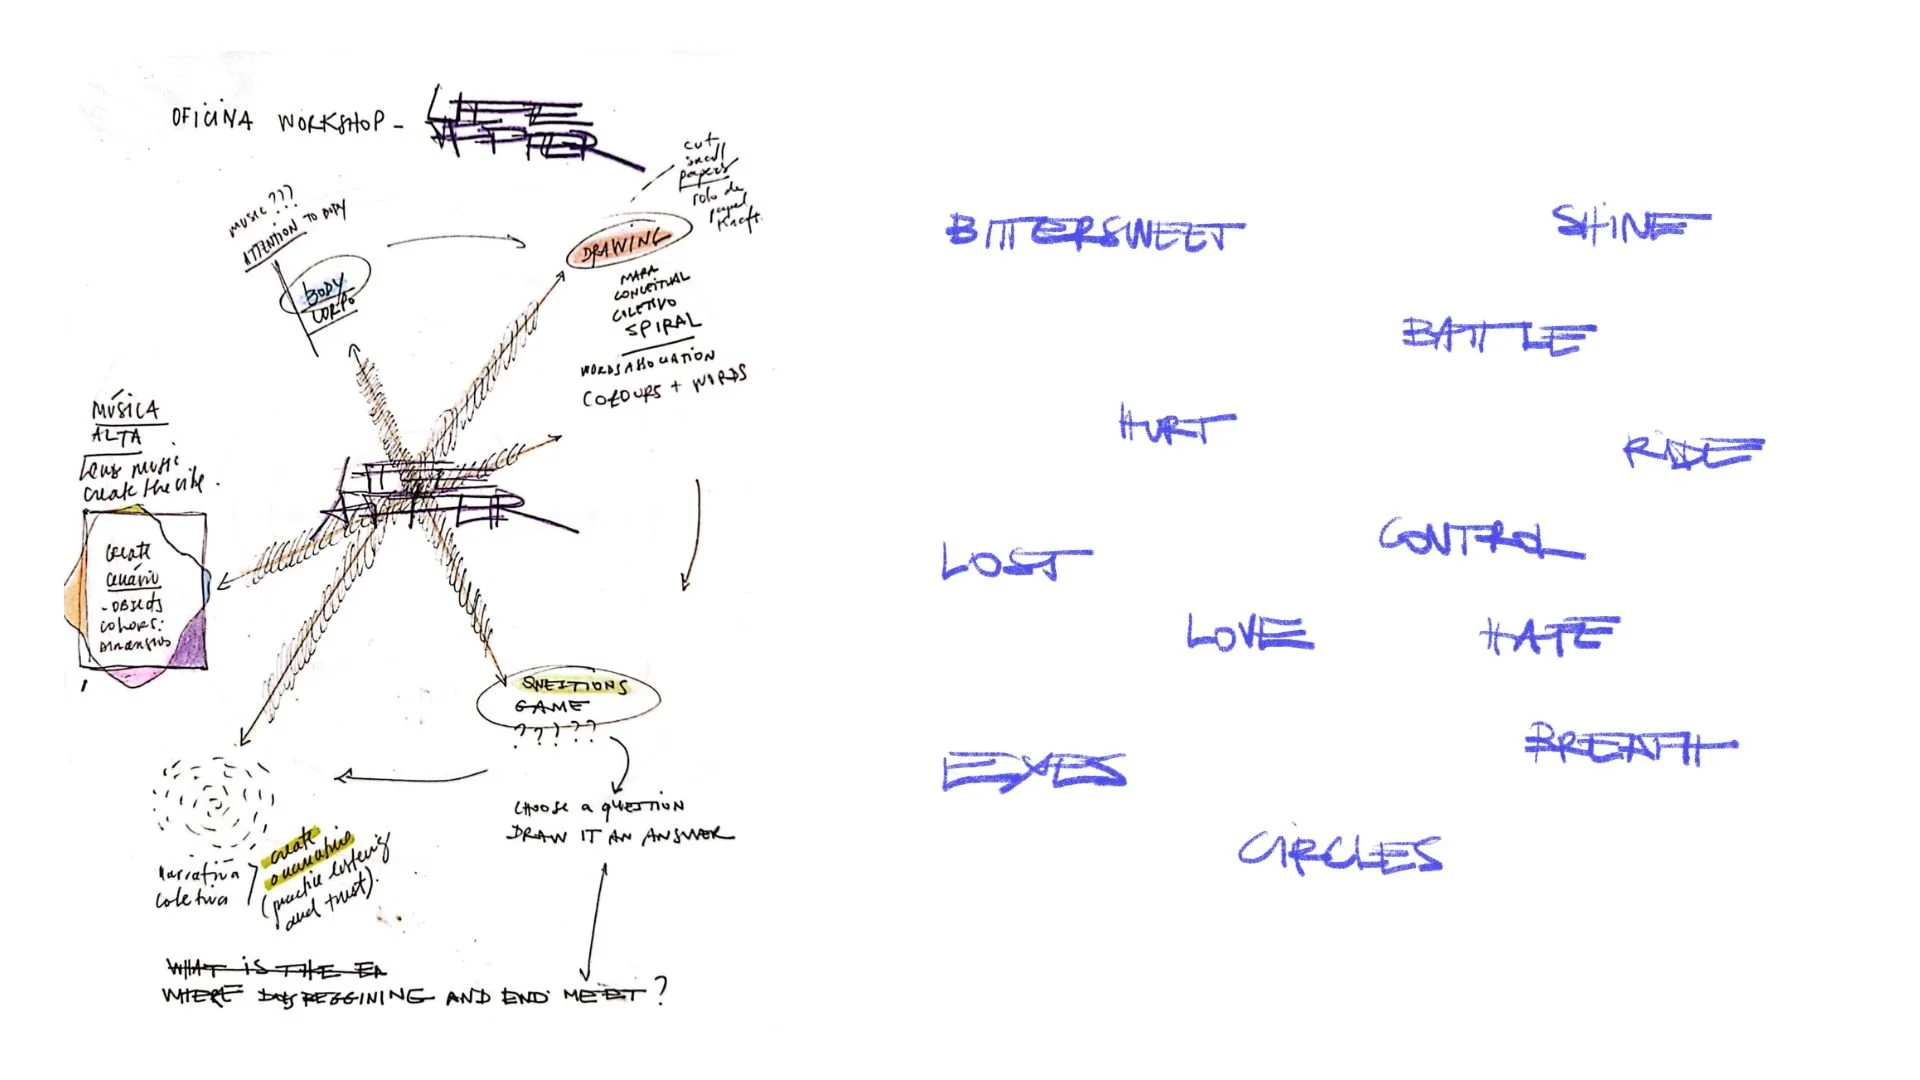 OFICINA WORKSHOP -
cut
small
papers
rolo de
papel
Kraft.
MUSIC ???
ATTENTION TO BODY
BODY
CORPO
DRAWING
MAPA
CONCEITUAL
COLETIVO
SPIRAL
WORDS ASSOCIATION
COLOURS + WORDS
MÚSICA
ALTA
music
create the vibe.
create
cenário
- OBJECTS
COLORS:
QUESTIONS
GAME
? ? ? ? ?
CHOOSE a QUESTION
DRAW IT AN ANSWER
narrativa
coletiva
create
a narrative
(practice listening
and trust).
WHAT IS THE EN
WHERE BEGGINING AND END MEET ?
BITTERSWEET
SHINE
BATTLE
HURT
RIDE
CONTROL
LOST
LOVE
HATE
BREATH
EYES
CIRCLES